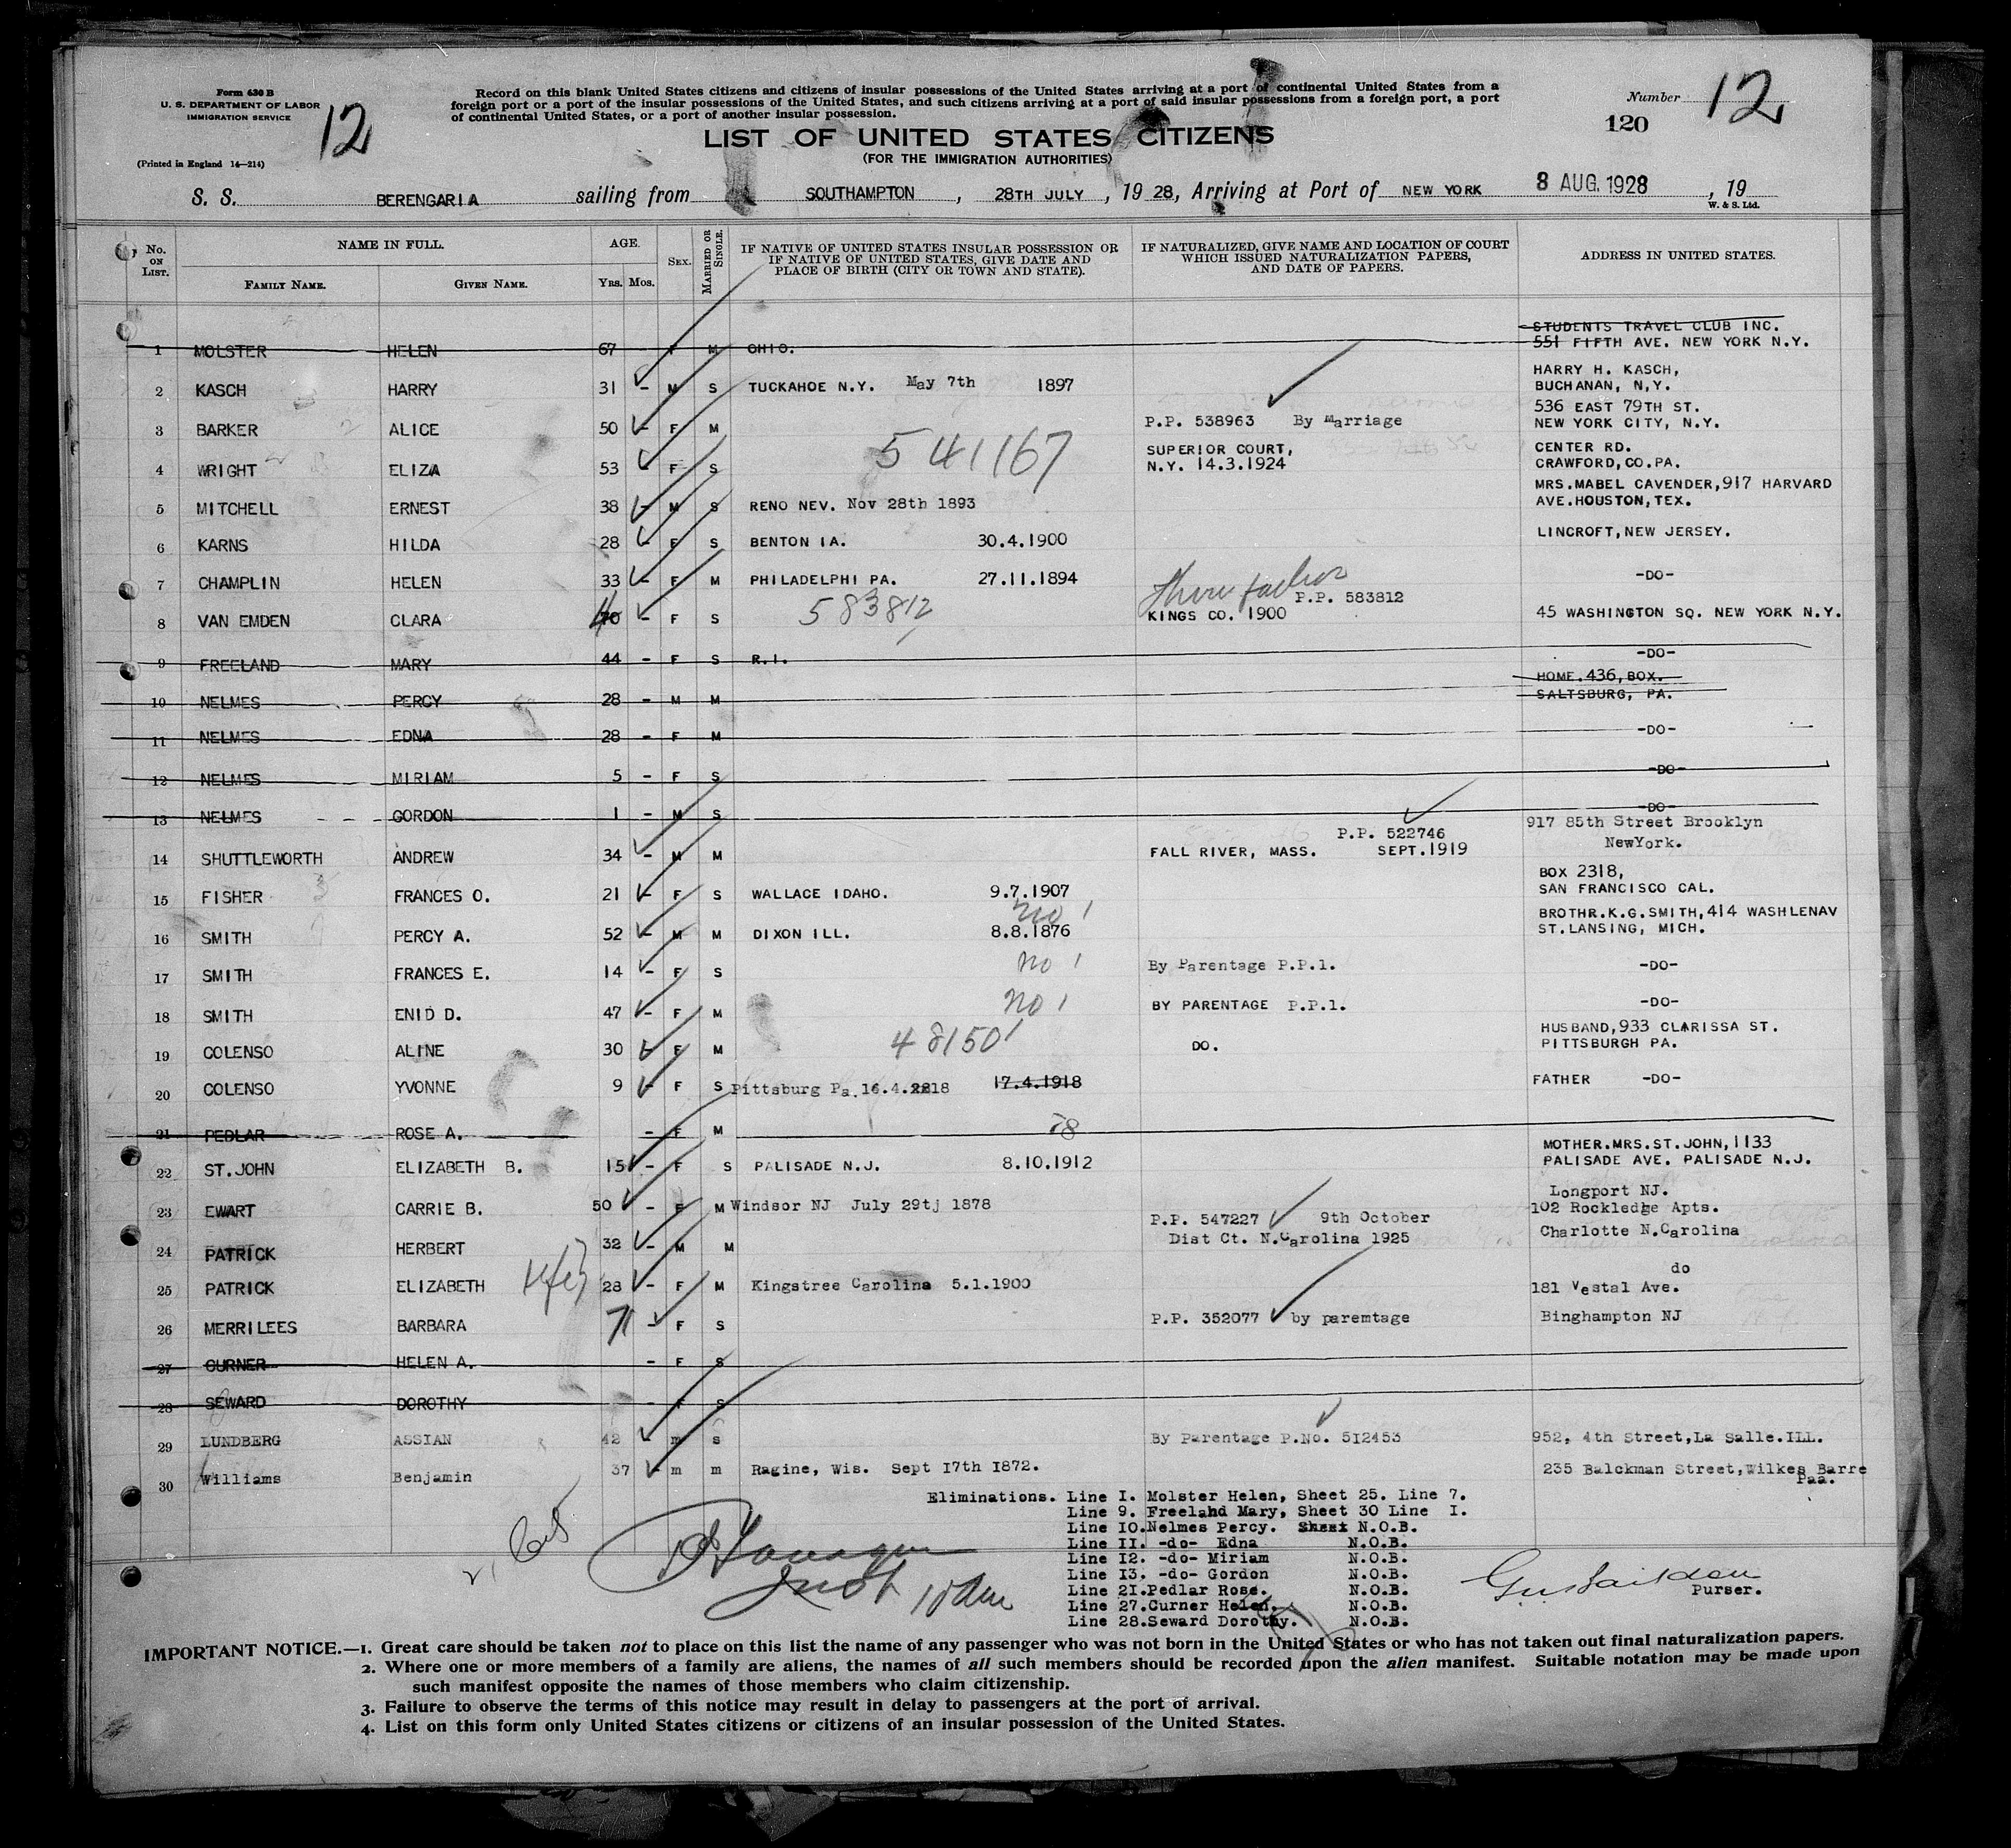 Form 630 B
U. S. DEPARTMENT OF LABOR
IMMIGRATION SERVICE
(Printed in England 14—214)
12
Record on this blank United States citizens and citizens of insular possessions of the United States arriving at a port of continental United States from a
foreign port or a port of the insular possessions of the United States, and such citizens arriving at a port of said insular possessions from a foreign port, a port
of continental United States, or a port of another insular possession.
Number 12
120
LIST OF UNITED STATES CITIZENS
(FOR THE IMMIGRATION AUTHORITIES)
S. S. BERENGARIA sailing from SOUTHAMPTON, 28TH JULY, 19 28, Arriving at Port of NEW YORK 8 AUG. 1928, 19
W. & S. Ltd.
No. ON LIST. NAME IN FULL. FAMILY NAME. GIVEN NAME. AGE. Yrs. Mos. SEX. MARRIED OR SINGLE. IF NATIVE OF UNITED STATES INSULAR POSSESSION OR IF NATIVE OF UNITED STATES, GIVE DATE AND PLACE OF BIRTH (CITY OR TOWN AND STATE). IF NATURALIZED, GIVE NAME AND LOCATION OF COURT WHICH ISSUED NATURALIZATION PAPERS, AND DATE OF PAPERS. ADDRESS IN UNITED STATES.
STUDENTS TRAVEL CLUB INC.
1 MOLSTER HELEN 67 - F M OHIO. 551 FIFTH AVE. NEW YORK N.Y.
HARRY H. KASCH,
2 KASCH HARRY 31 - M S TUCKAHOE N.Y. May 7th 1897 BUCHANAN, N.Y.
536 EAST 79TH ST.
3 BARKER ALICE 50 - F M P.P. 538963 By Marriage NEW YORK CITY, N.Y.
541167 SUPERIOR COURT, CENTER RD.
4 WRIGHT ELIZA 53 - F S N.Y. 14.3.1924 CRAWFORD,CO.PA.
MRS.MABEL CAVENDER,917 HARVARD
5 MITCHELL ERNEST 38 - M S RENO NEV. Nov 28th 1893 AVE.HOUSTON,TEX.
6 KARNS HILDA 28 - F S BENTON IA. 30.4.1900 LINCROFT,NEW JERSEY.
7 CHAMPLIN HELEN 33 - F M PHILADELPHI PA. 27.11.1894 -DO-
583812 P.P. 583812
8 VAN EMDEN CLARA 70 - F S KINGS CO. 1900 45 WASHINGTON SQ. NEW YORK N.Y.
9 FREELAND MARY 44 - F S R.I. -DO-
HOME.436,BOX.
10 NELMES PERCY 28 - M M SALTSBURG, PA.
11 NELMES EDNA 28 - F M -DO-
12 NELMES MIRIAM 5 - F S -DO-
13 NELMES GORDON 1 - M S -DO-
P.P. 522746 917 85th Street Brooklyn
14 SHUTTLEWORTH ANDREW 34 - M M FALL RIVER, MASS. SEPT.1919 NewYork.
BOX 2318,
15 FISHER FRANCES O. 21 - F S WALLACE IDAHO. 9.7.1907 SAN FRANCISCO CAL.
no 1 BROTHR.K.G.SMITH,414 WASHLENAV
16 SMITH PERCY A. 52 - M M DIXON ILL. 8.8.1876 ST.LANSING, MICH.
17 SMITH FRANCES E. 14 - F S no 1 By Parentage P.P.1. -DO-
18 SMITH ENID D. 47 - F M no 1 BY PARENTAGE P.P.1. -DO-
HUSBAND,933 CLARISSA ST.
19 COLENSO ALINE 30 - F M 481501 DO. PITTSBURGH PA.
20 COLENSO YVONNE 9 - F S Pittsburg Pa. 16.4.1918 17.4.1918 FATHER -DO-
21 PEDLAR ROSE A. - F M 78
MOTHER.MRS.ST.JOHN,1133
22 ST.JOHN ELIZABETH B. 15 - F S PALISADE N.J. 8.10.1912 PALISADE AVE. PALISADE N.J.
Longport NJ.
23 EWART CARRIE B. 50 - F M Windsor NJ July 29tj 1878 102 Rockledge Apts.
P.P. 547227 9th October
24 PATRICK HERBERT 32 - M M Dist Ct. N.Carolina 1925 Charlotte N.Carolina
do
25 PATRICK ELIZABETH 28 - F M Kingstree Carolina 5.1.1900 181 Vestal Ave.
26 MERRILEES BARBARA 71 - F S P.P. 352077 by paremtage Binghampton NJ
27 CURNER HELEN A. - F S
28 SEWARD DOROTHY - F S
29 LUNDBERG ASSIAN 42 - m s By Parentage P.No. 512453 952, 4th Street,La Salle.ILL.
30 Williams Benjamin 37 - m m Ragine, Wis. Sept I7th I872. 235 Balckman Street,Wilkes Barre
Paa.
Eliminations. Line I. Molster Helen, Sheet 25. Line 7.
Line 9. Freelahd Mary, Sheet 30 Line I.
Line IO.Nelmes Percy. Sheet N.O.B.
Line II. -do- Edna N.O.B.
Line I2. -do- Miriam N.O.B.
Line I3. -do- Gordon N.O.B.
Line 2I.Pedlar Rose. N.O.B.
Line 27.Curner Helen. N.O.B.
Line 28.Seward Dorothy. N.O.B.
Purser.
IMPORTANT NOTICE.—1. Great care should be taken not to place on this list the name of any passenger who was not born in the United States or who has not taken out final naturalization papers.
2. Where one or more members of a family are aliens, the names of all such members should be recorded upon the alien manifest. Suitable notation may be made upon
such manifest opposite the names of those members who claim citizenship.
3. Failure to observe the terms of this notice may result in delay to passengers at the port of arrival.
4. List on this form only United States citizens or citizens of an insular possession of the United States.